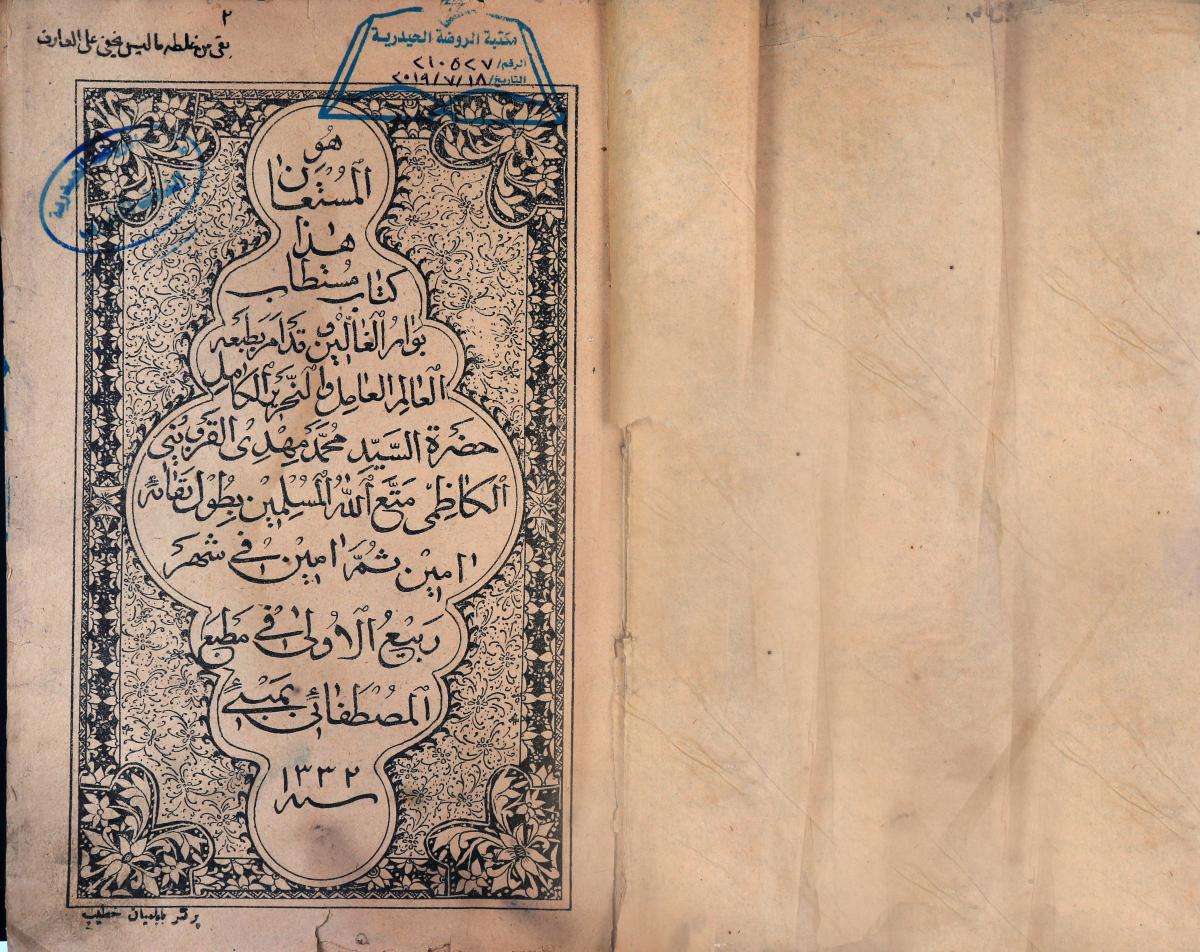 ٢
بقى من غلطه ما ليس يخفى على العارف
مكتبة الروضة الحيدرية
الرقم/ ٢١٠٥٢٧
التاريخ/ ٢٠١٩/٧/١٨
هُو
المُسْتَعَان
هذا
كتاب مُستطاب
بَوارُ الغَالين وقَد اَمَرَ بطبعه
العَالم العامِل والنّحرير الكامِل
حضرة السَّيّد محُمّد مَهْدى القزوينى
الكاظِمى مَتّع اَللهُ المُسْلمين بِطُول بَقائه
امين ثمّ امين فى شهرَ
رَبيعُ الاُولى فى مَطبَع
المُصْطَفائى بمبئى
١٣٣٢
سنه
پرنٹر بابامیان خطیب